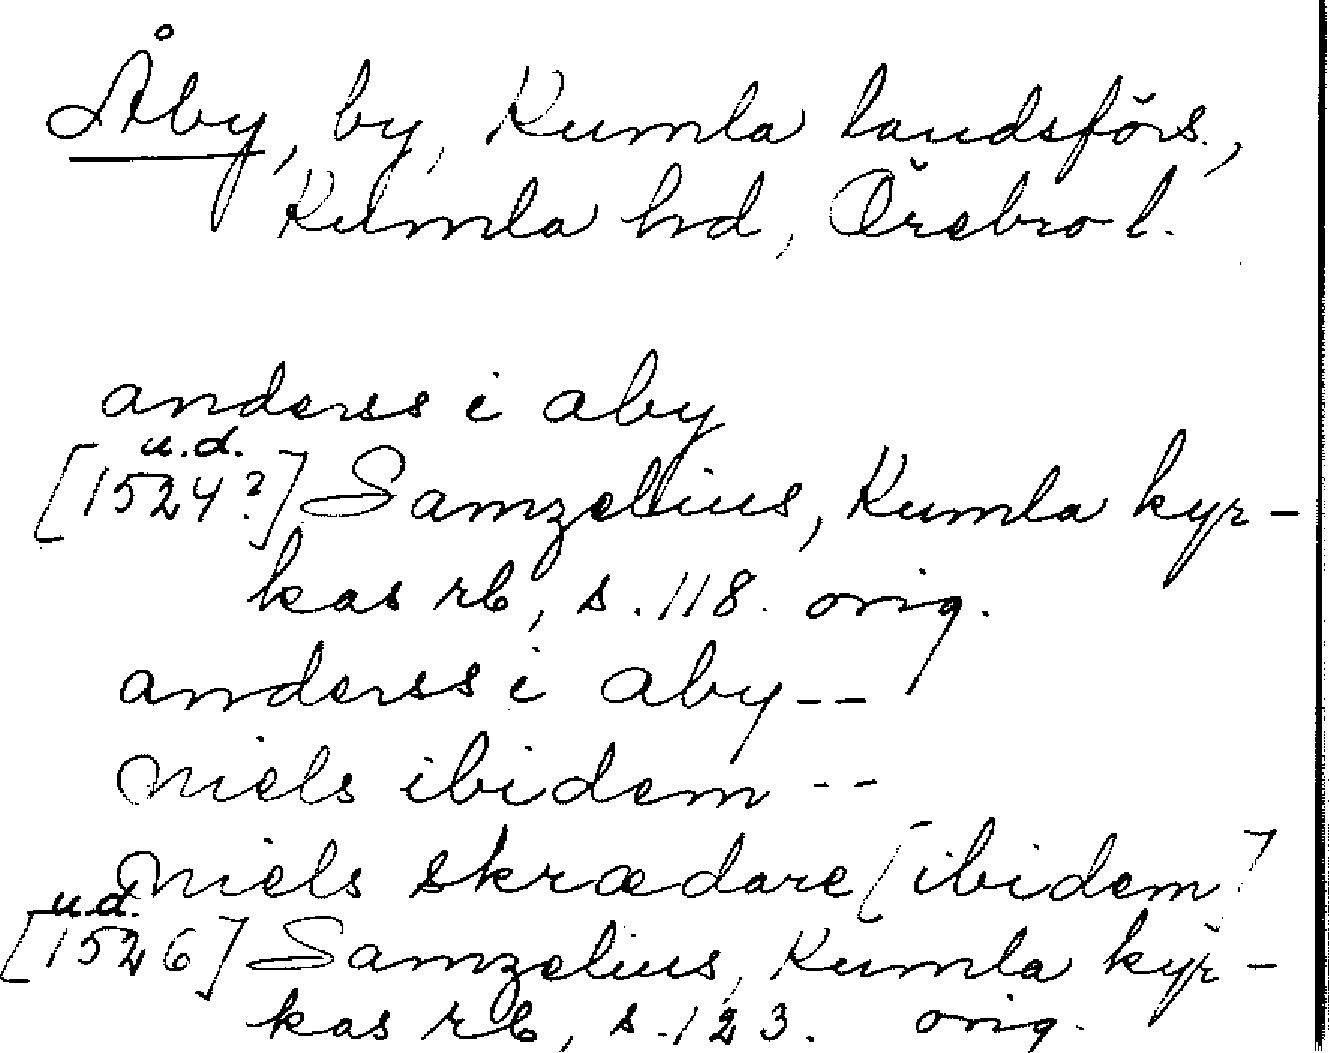 Åby, by, Kumla landsförs.,
Kumla hd, Örebro l.
anderss i aby
u.d.
[1524?] Samzelius, Kumla kyr-
kas rb, s. 118. orig.
anderss i aby --
niels ibidem --
niels skrædare [ibidem]
u.d.
[1526] Samzelius, Kumla kyr-
kas rb, s. 123. orig.